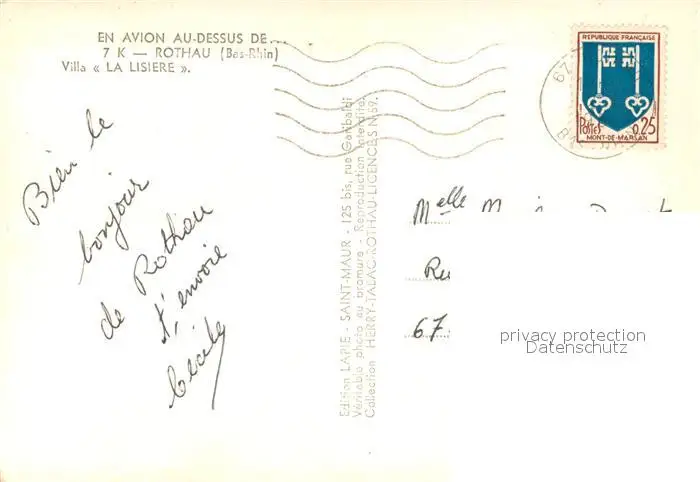 EN AVION AU-DESSUS DE...
7 K — ROTHAU (Bas-Rhin)
Villa « LA LISIERE ».
Bien le
bonjour
de Rothau
t'envoie
Cécile
Edition LAPIE - SAINT-MAUR - 125 bis, rue Garibaldi
Véritable photo au bromure - Reproduction interdite
Collection HERRY-TALAC-ROTHAU-LICENCES N° 69.
REPUBLIQUE FRANÇAISE
Postes 0,25
MONT-DE-MARSAN
67
Melle
Ru
67
privacy protection
Datenschutz